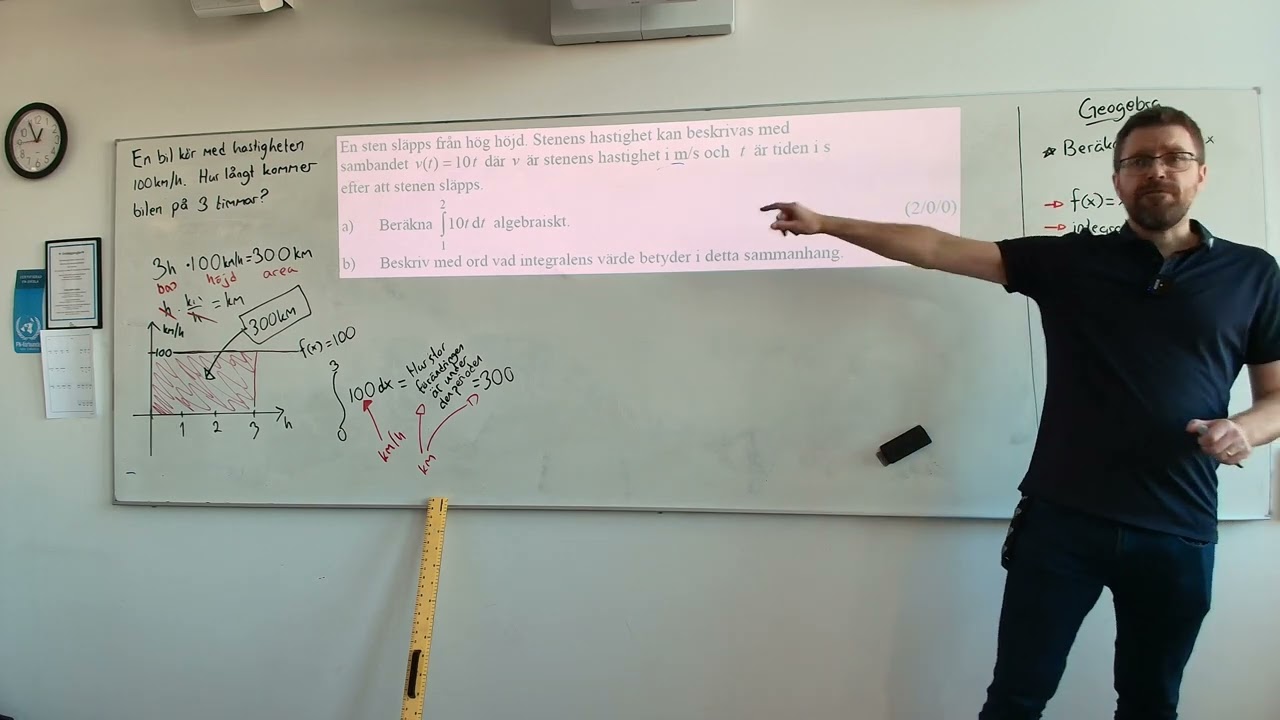 En bil kör med hastigheten
100km/h. Hur långt kommer
bilen på 3 timmar?
3h · 100km/h = 300 km
bas höjd area
h · km/h = km
km/h
300km
100
f(x)=100
1 2 3 h
3
∫ 100 dx = Hur stor förändringen är under den perioden = 300
0
km/h
km
En sten släpps från hög höjd. Stenens hastighet kan beskrivas med
sambandet v(t) = 10t där v är stenens hastighet i m/s och t är tiden i s
efter att stenen släpps.
2
a) Beräkna ∫ 10t dt algebraiskt. (2/0/0)
1
b) Beskriv med ord vad integralens värde betyder i detta sammanhang.
Geogebra
x
→ f(x)=